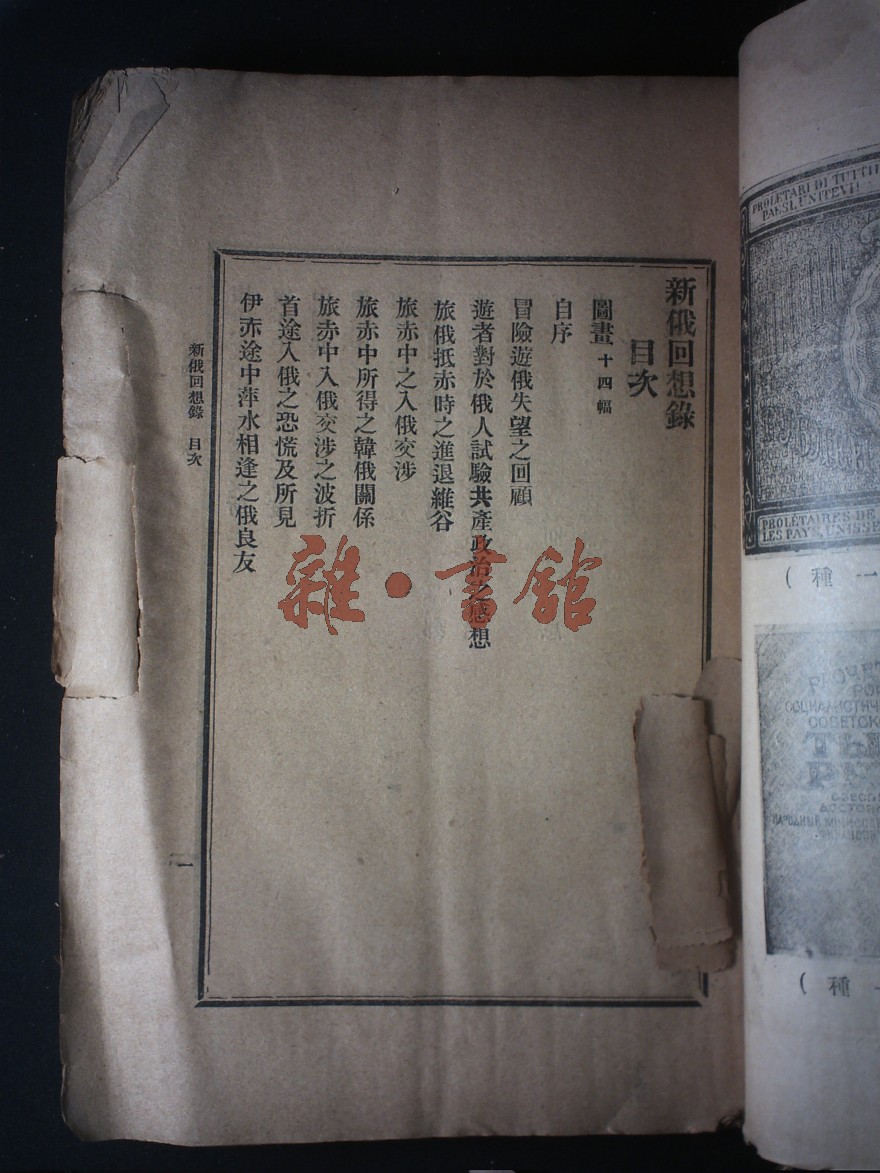 新俄回想錄
目次
圖畫 十四幅
自序
冒險遊俄失望之回顧
遊者對於俄人試驗共產政治之感想
旅俄抵赤時之進退維谷
旅赤中之入俄交涉
旅赤中所得之韓俄關係
旅赤中入俄交涉之波折
首途入俄之恐慌及所見
伊赤途中萍水相逢之俄良友
新俄回想錄 目次
一
雜·書館
PROLETARI DI TUTTI
PAESI, UNITEVI!
PROLÉTAIRES DE
LES PAYS, UNISSE
(種一
СОЦИАЛИСТИЧ
СОВЕТСК
(種一